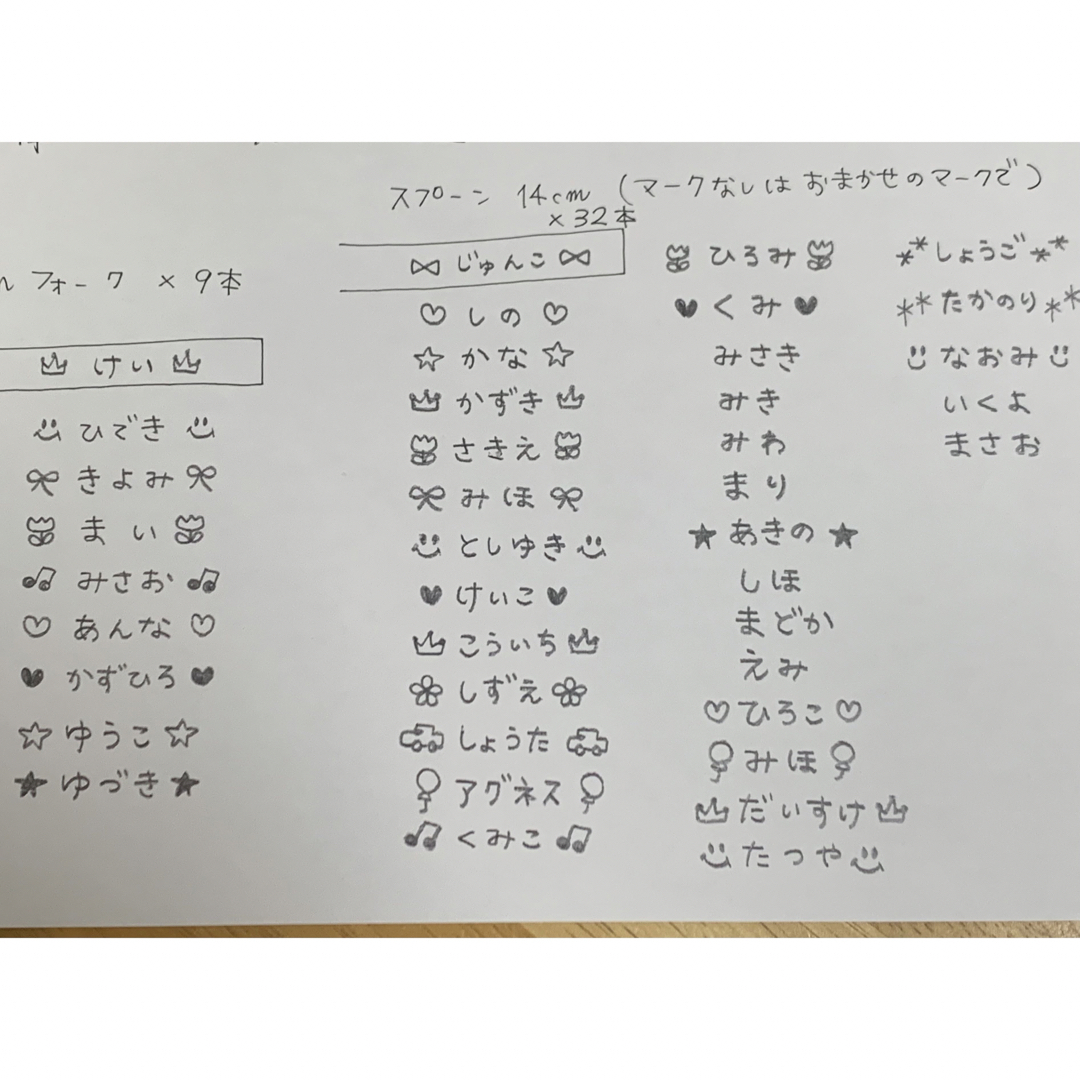 フォーク × 9本
けい
ひでき
きよみ
まい
みさお
あんな
かずひろ
ゆうこ
ゆづき
スプーン 14cm (マークなしは おまかせのマークで)
× 32本
じゅんこ
しの
かな
かずき
さきえ
みほ
としゆき
けいこ
こういち
しずえ
しょうた
アグネス
くみこ
ひろみ
くみ
みさき
みき
みわ
まり
あきの
しほ
まどか
えみ
ひろこ
みほ
だいすけ
たつや
しょうご
たかのり
なおみ
いくよ
まさお